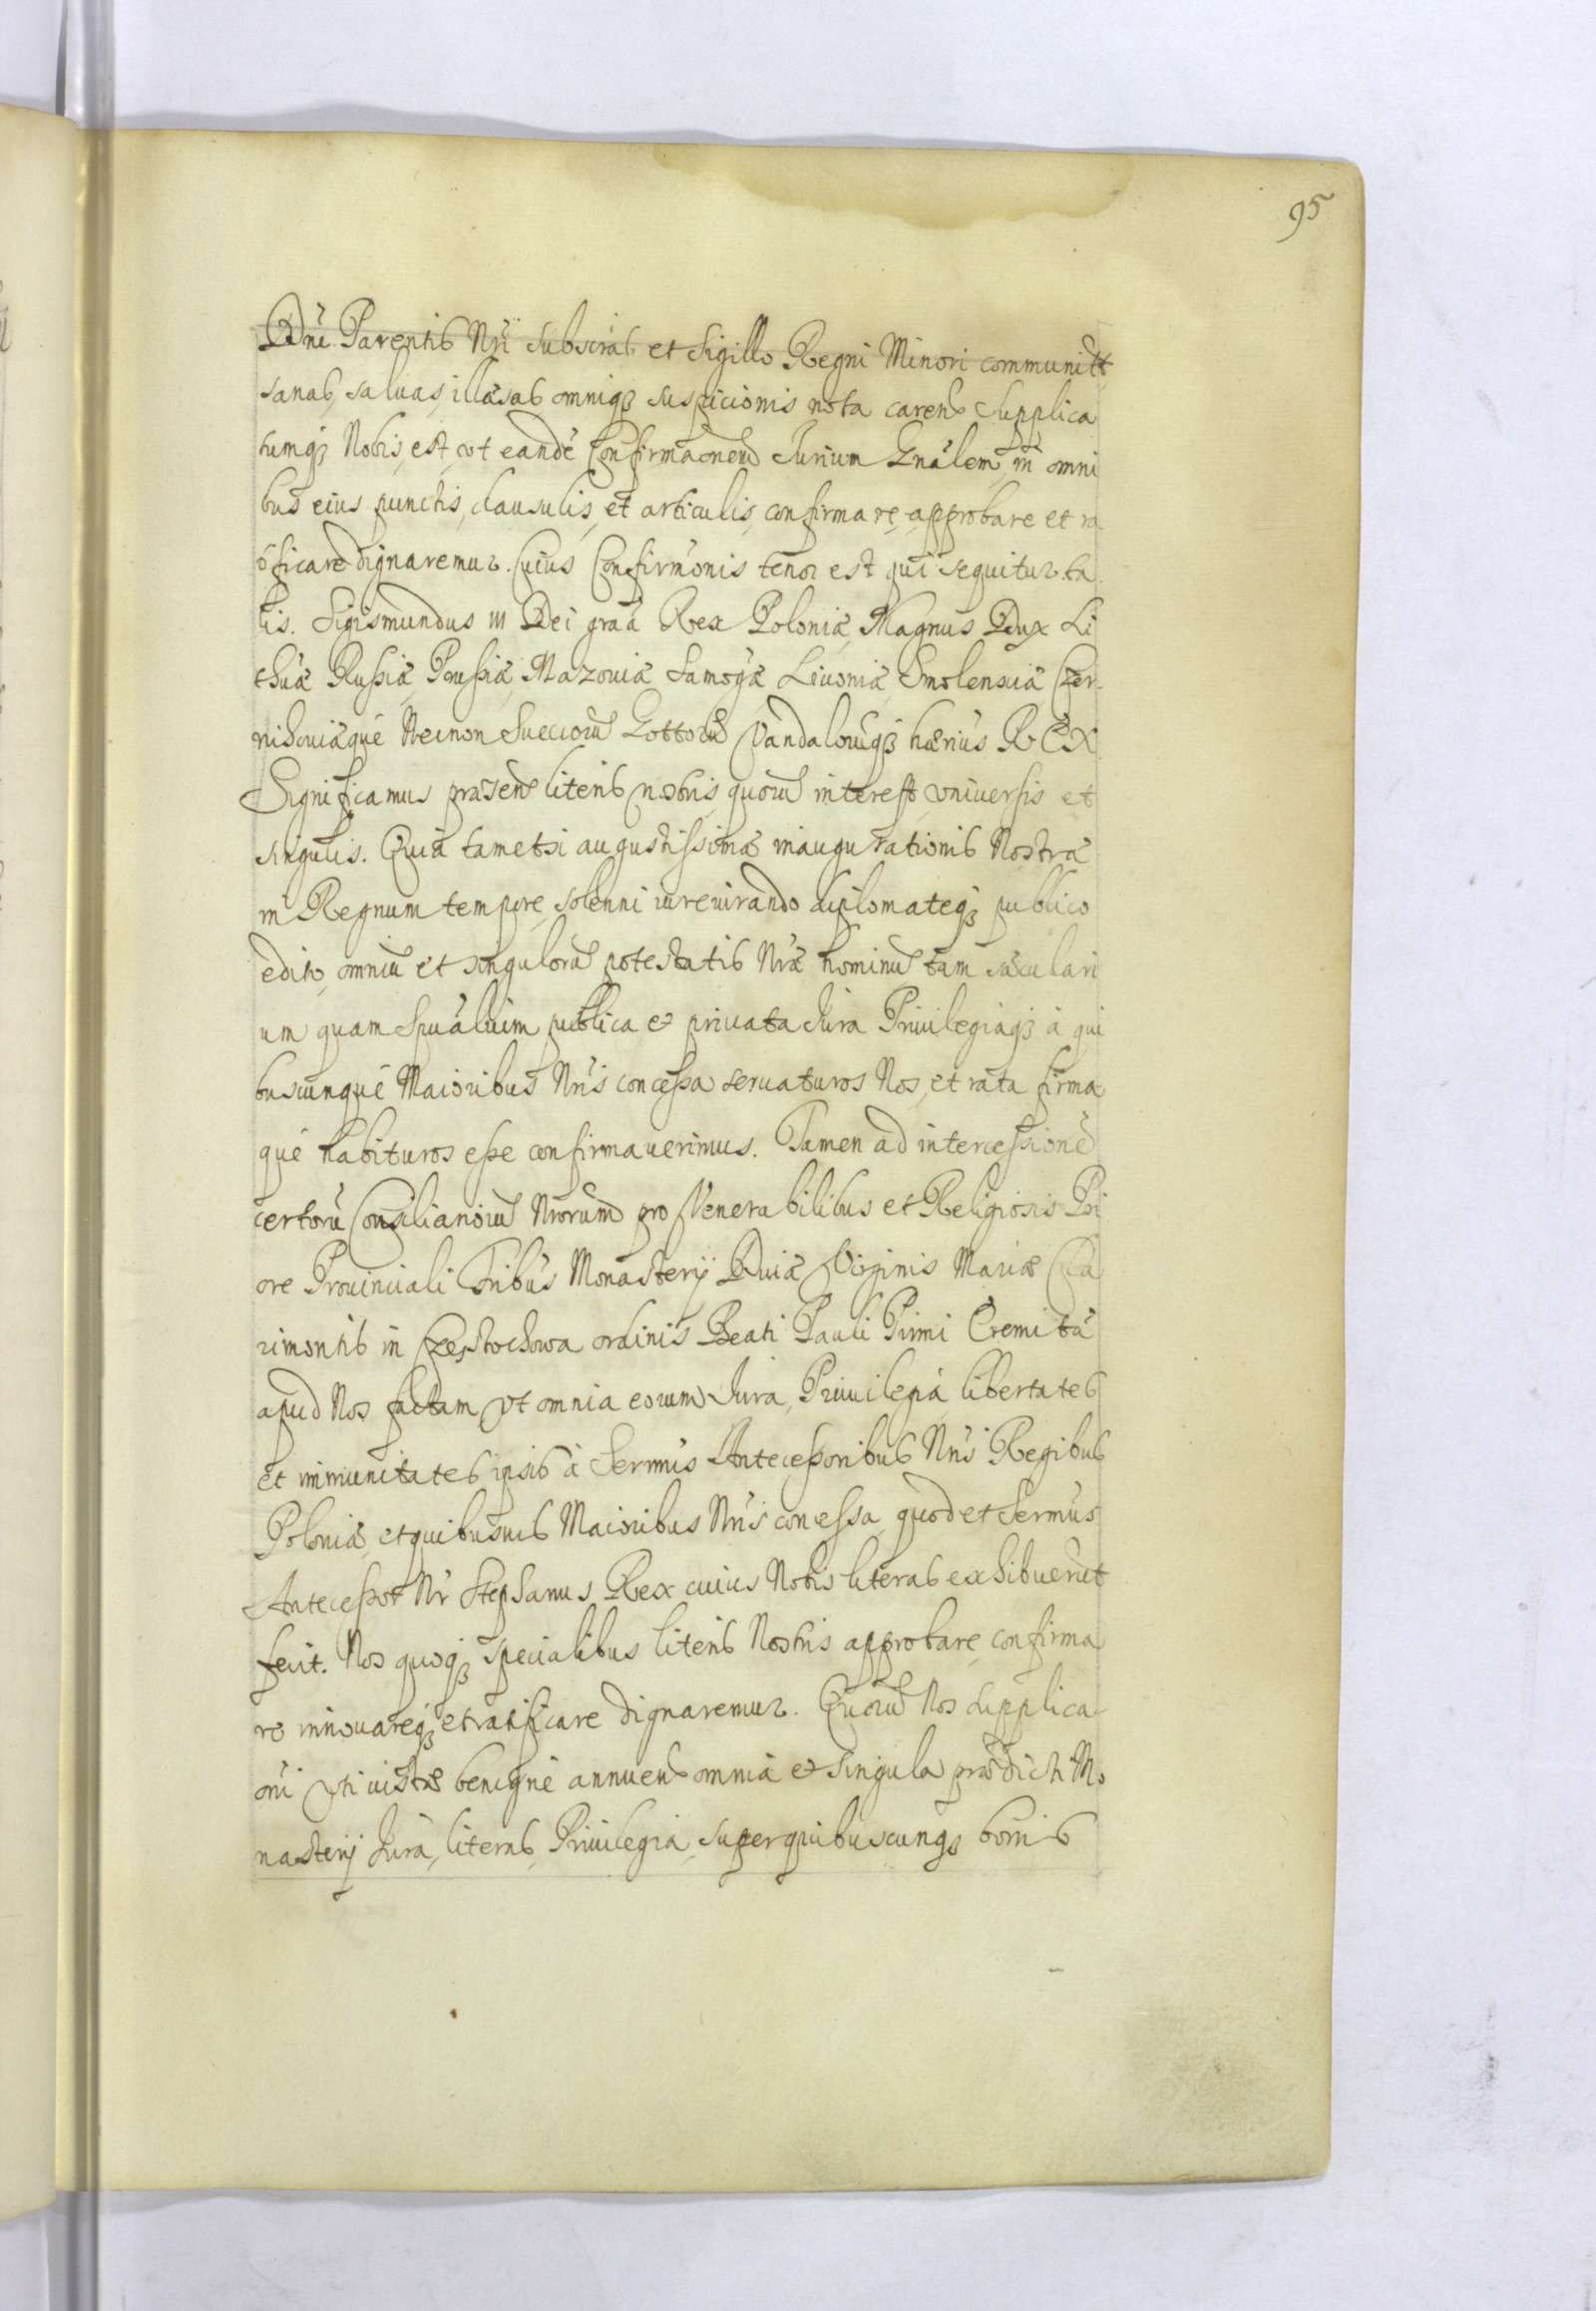 95
Dni Parentis Nri subscrās et Sigillo Regni Minori communitt
sanas, saluas, illæsas omniq3 suspicionis nota carens Supplica
tumq3 Nobis est, vt eandē Confirmaōnem Jurium Gnālem in omni
bus eius punctis, clausulis, et articulis, confirmare, approbare et ra
tificare dignaremur. Cuius Confirmōnis tenor est qui sequitur ta
lis. Sigismundus III Dei graā Rex Poloniæ Magnus Dux Li
thūæ Rußiæ, Prußiæ, Mazouiæ Samogæ Liuoniæ Smolensciæ Czer
nichouiæqué Necnon Suecorū Gottorū Vandalorūq3 hærius REX
Significamus præsens literis nostris, quorū interest, vniuersis et
singulis. Quia tametsi augustissimæ inaugurationis Nostræ
in Regnum tempore, solenni iureiurando diplomateq3 publico
edito, omniū et singulorū potestatis Nræ hominū tam sæculari
um quam Spuālium publica et priuata Jura Priuilegiaq3 à qui
buscunqué Maioribus Nris concessa seruaturos Nos, et rata firma
qué habituros eße confirmauerimus. Tamen ad intercessionē
certorū Consiliariorū Nrorum pro Venerabilibus et Religiosis Pri
ore Prouinciali Fribus Monasterij Diuæ Virginis Mariæ Cla
rimontis in Częstochowa ordinis Beati Pauli Primi Eremitæ
apud Nos factam vt omnia eorum Jura, Priuilegia libertates
et immunitates ipsis à Sermis Anteceßoribus Nris Regibus
Poloniæ, et quibusuis Maioribus Nris concessa, quod et Sermus
Anteceßor Nr Stephanus Rex cuius Nobis literas exhibuerūt
fecit. Nos quoq3 specialibus literis Nostris approbare, confirma
re innouareq3 et ratificare dignaremur. Quorū Nos supplica
oni vti iustæ benigne annuens omnia et singula prædicti Mo
nasterij Jura, literas, Priuilegia, super quibuscunq3 bonis